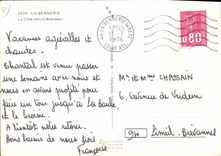 2479 LA BERNERIE
La Côte vers Crèvecoeur
Vacances agréables et
chaudes.
Chantal est venue passer
une semaine avec nous et
nous en avons profité pour
faire un tour jusqu'à la Baule
et le
A bientôt votre retour.
Bons baisers de nous tous
Françoise
1976
0,80
Mr et Mme CHASSAIN
6, avenue de Verdun
94 Limeil-Brévannes